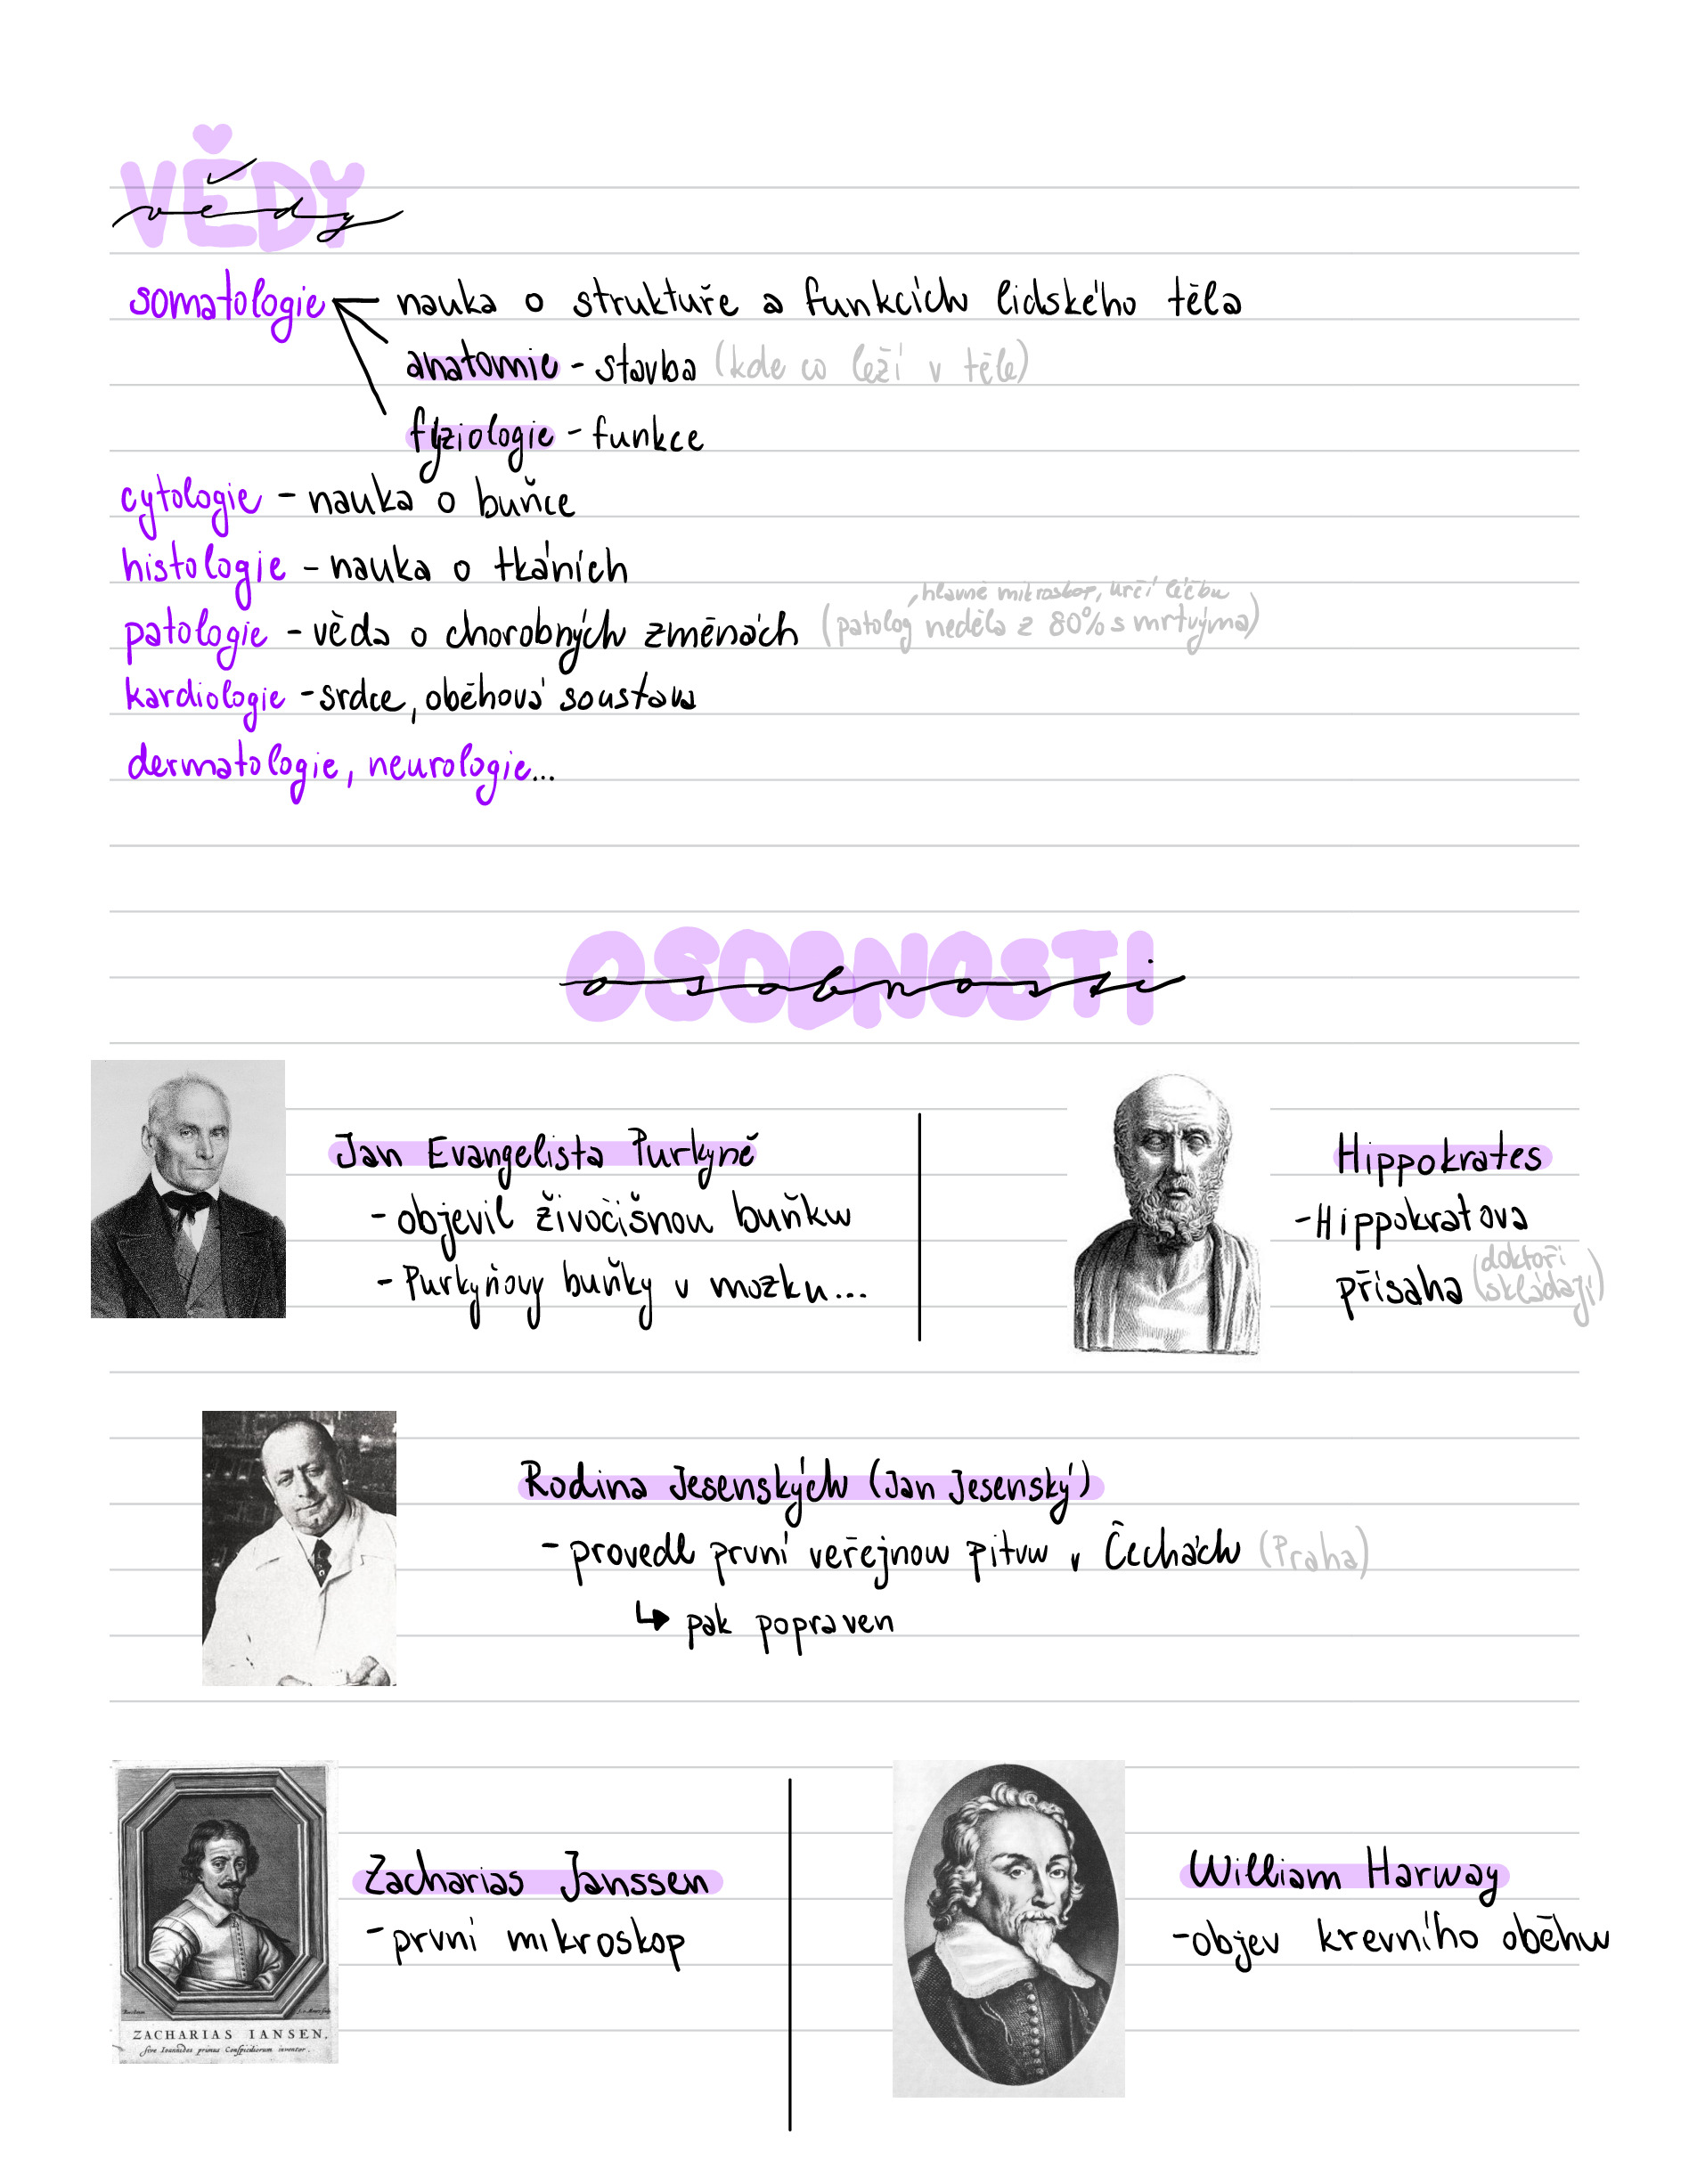 VĚDY
vědy
somatologie - nauka o struktuře a funkcích lidského těla
anatomie - stavba (kde co leží v těle)
fyziologie - funkce
cytologie - nauka o buňce
histologie - nauka o tkáních
hlavně mikroskop, určí léčbu
patologie - věda o chorobných změnách (patolog nedělá z 80% s mrtvýma)
kardiologie - srdce, oběhová soustava
dermatologie, neurologie...
OSOBNOSTI
osobnosti
Jan Evangelista Purkyně
- objevil živočišnou buňku
- Purkyňovy buňky v mozku...
Hippokrates
- Hippokratova
přísaha (doktoři
skládají)
Rodina Jesenských (Jan Jesenský)
- provedl první veřejnou pitvu v Čechách (Praha)
↳ pak popraven
Zacharias Janssen
- první mikroskop
ZACHARIAS IANSEN,
sive Ioannides primus Conspiciliorum inventor.
William Harway
- objev krevního oběhu